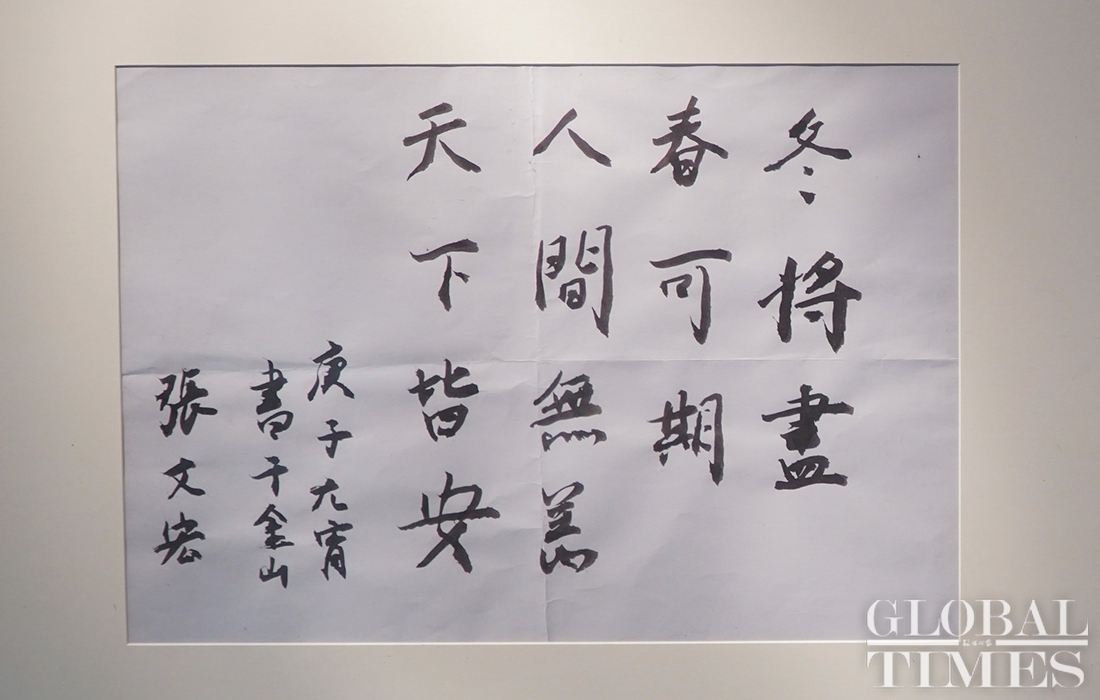 冬将盡
春可期
人間無恙
天下皆安
庚子元宵
書于金山
張文宏
GLOBAL
TIMES